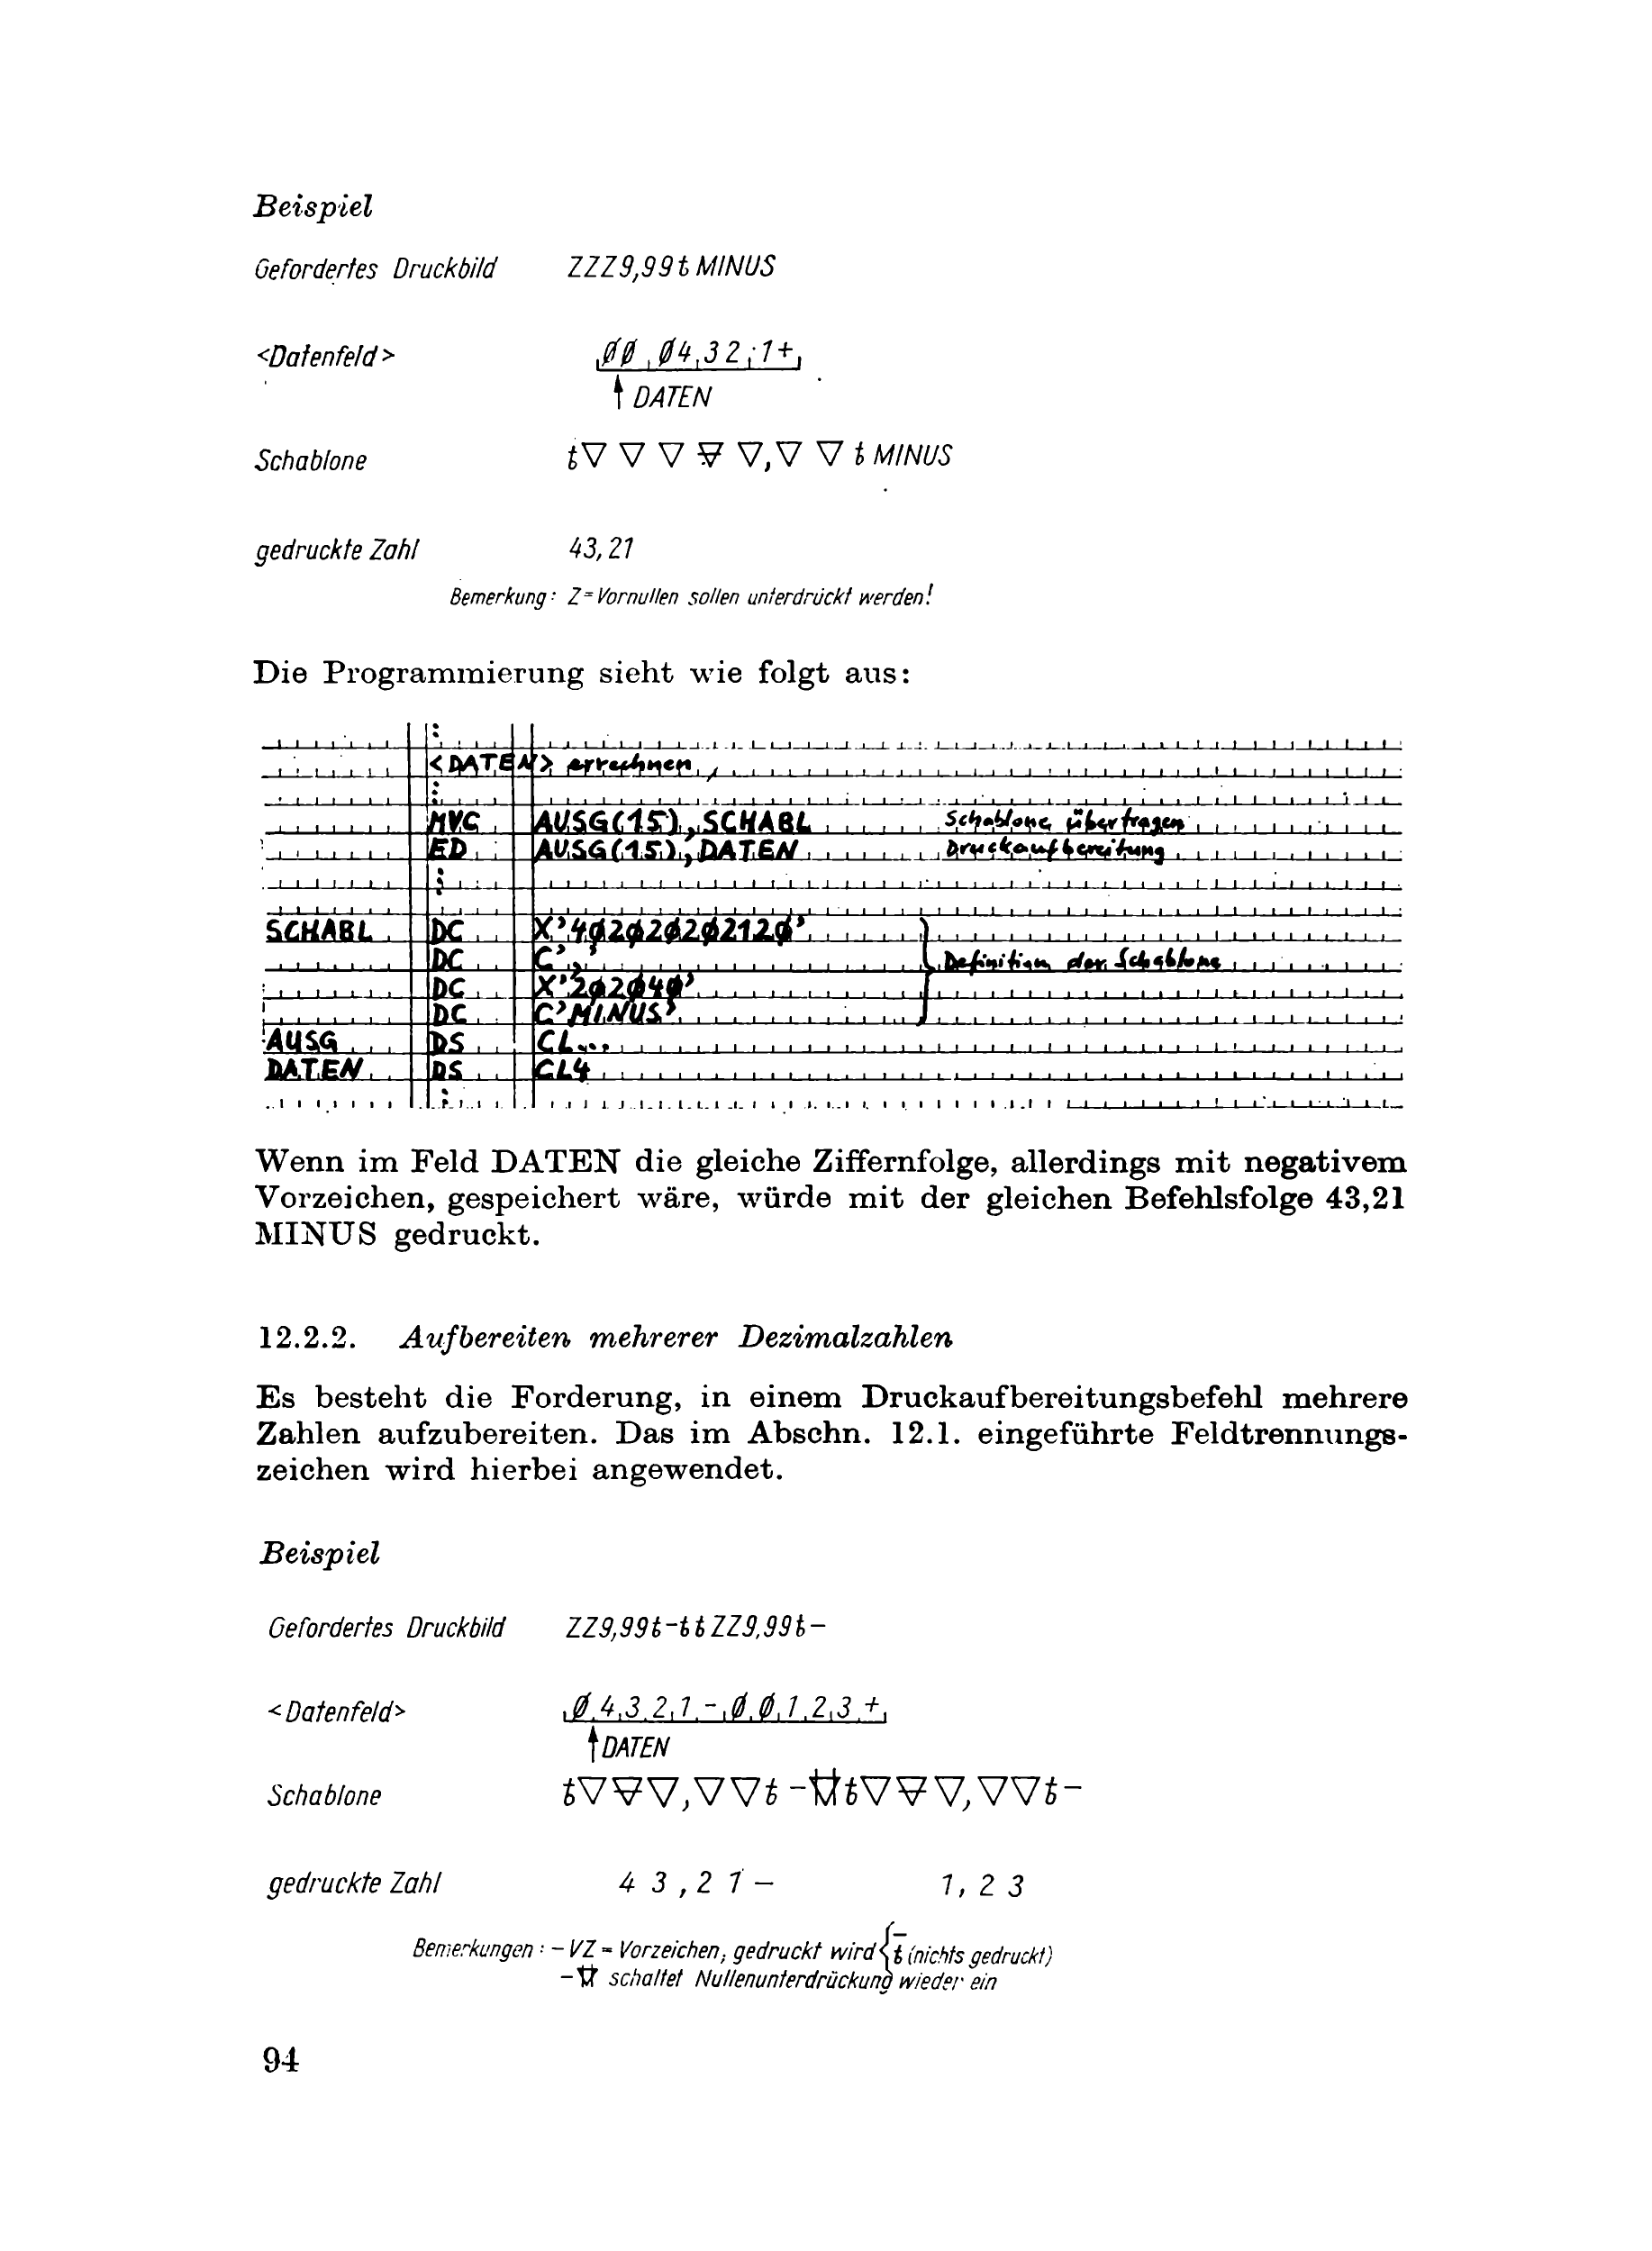 Beispiel
Gefordertes Druckbild ZZZ9,99ƀMINUS
<Datenfeld> 00 04 32 1+
↑ DATEN
Schablone ƀ▽ ▽ ▽ ⍫ ▽,▽ ▽ ƀ MINUS
gedruckte Zahl 43,21
Bemerkung: Z=Vornullen sollen unterdrückt werden!
Die Programmierung sieht wie folgt aus:
:
<DATEN> errechnen
:
MVC AUSG(15),SCHABL Schablone übertragen
ED AUSG(15),DATEN Druckaufbereitung
:
SCHABL DC X'40202020212 0'
DC C',' Definition der Schablone
DC X'202040'
DC C'MINUS'
AUSG DS CL...
DATEN DS CL4
:
Wenn im Feld DATEN die gleiche Ziffernfolge, allerdings mit negativem
Vorzeichen, gespeichert wäre, würde mit der gleichen Befehlsfolge 43,21
MINUS gedruckt.
12.2.2. Aufbereiten mehrerer Dezimalzahlen
Es besteht die Forderung, in einem Druckaufbereitungsbefehl mehrere
Zahlen aufzubereiten. Das im Abschn. 12.1. eingeführte Feldtrennungs-
zeichen wird hierbei angewendet.
Beispiel
Gefordertes Druckbild ZZ9,99ƀ-ƀƀZZ9,99ƀ-
<Datenfeld> 0 4 3 2 1 - 0 0 1 2 3 +
↑DATEN
Schablone ƀ▽⍫▽,▽▽ƀ - ƀ▽⍫▽,▽▽ƀ-
gedruckte Zahl 4 3 , 2 1 - 1, 2 3
Bemerkungen: - VZ = Vorzeichen, gedruckt wird { - ƀ (nichts gedruckt)
- schaltet Nullenunterdrückung wieder ein
94